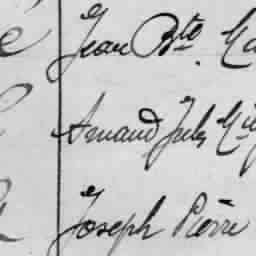 Jean Bte. Ca
Armand Jules
Joseph Pierre